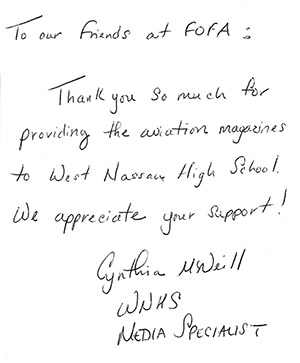 To our friends at FOFA :
Thank you so much for
providing the aviation magazines
to West Nassau High School.
We appreciate your support!
Cynthia McNeill
WNHS
MEDIA SPECIALIST